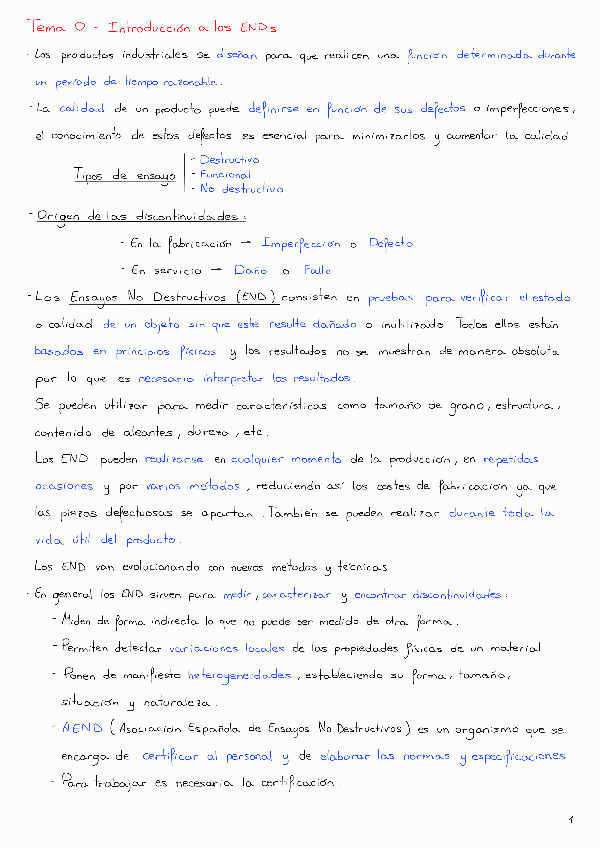 Tema 0 - Introducción a los ENDs
- Los productos industriales se diseñan para que realicen una función determinada durante
un período de tiempo razonable.
- La calidad de un producto puede definirse en función de sus defectos o imperfecciones,
el conocimiento de estos defectos es esencial para minimizarlos y aumentar la calidad
Tipos de ensayo
- Destructivo
- Funcional
- No destructivo
- Origen de las discontinuidades:
- En la fabricación → Imperfección o Defecto
- En servicio → Daño o Fallo
- Los Ensayos No Destructivos (END) consisten en pruebas para verificar el estado
o calidad de un objeto sin que este resulte dañado o inutilizado Todos ellos están
basados en principios físicos y los resultados no se muestran de manera absoluta
por lo que es necesario interpretar los resultados.
Se pueden utilizar para medir características como tamaño de grano, estructura,
contenido de aleantes, dureza, etc.
Los END pueden realizarse en cualquier momento de la producción, en repetidas
ocasiones y por varios métodos, reduciendo así los costes de fabricación ya que
las piezas defectuosas se apartan. También se pueden realizar durante toda la
vida útil del producto.
Los END van evolucionando con nuevos métodos y técnicas
- En general los END sirven para medir, caracterizar y encontrar discontinuidades:
- Miden de forma indirecta lo que no puede ser medido de otra forma.
- Permiten detectar variaciones locales de las propiedades físicas de un material
- Ponen de manifiesto heterogeneidades, estableciendo su forma, tamaño,
situación y naturaleza.
- AEND (Asociación Española de Ensayos No Destructivos) es un organismo que se
encarga de certificar al personal y de elaborar las normas y especificaciones
- Para trabajar es necesaria la certificación.
1